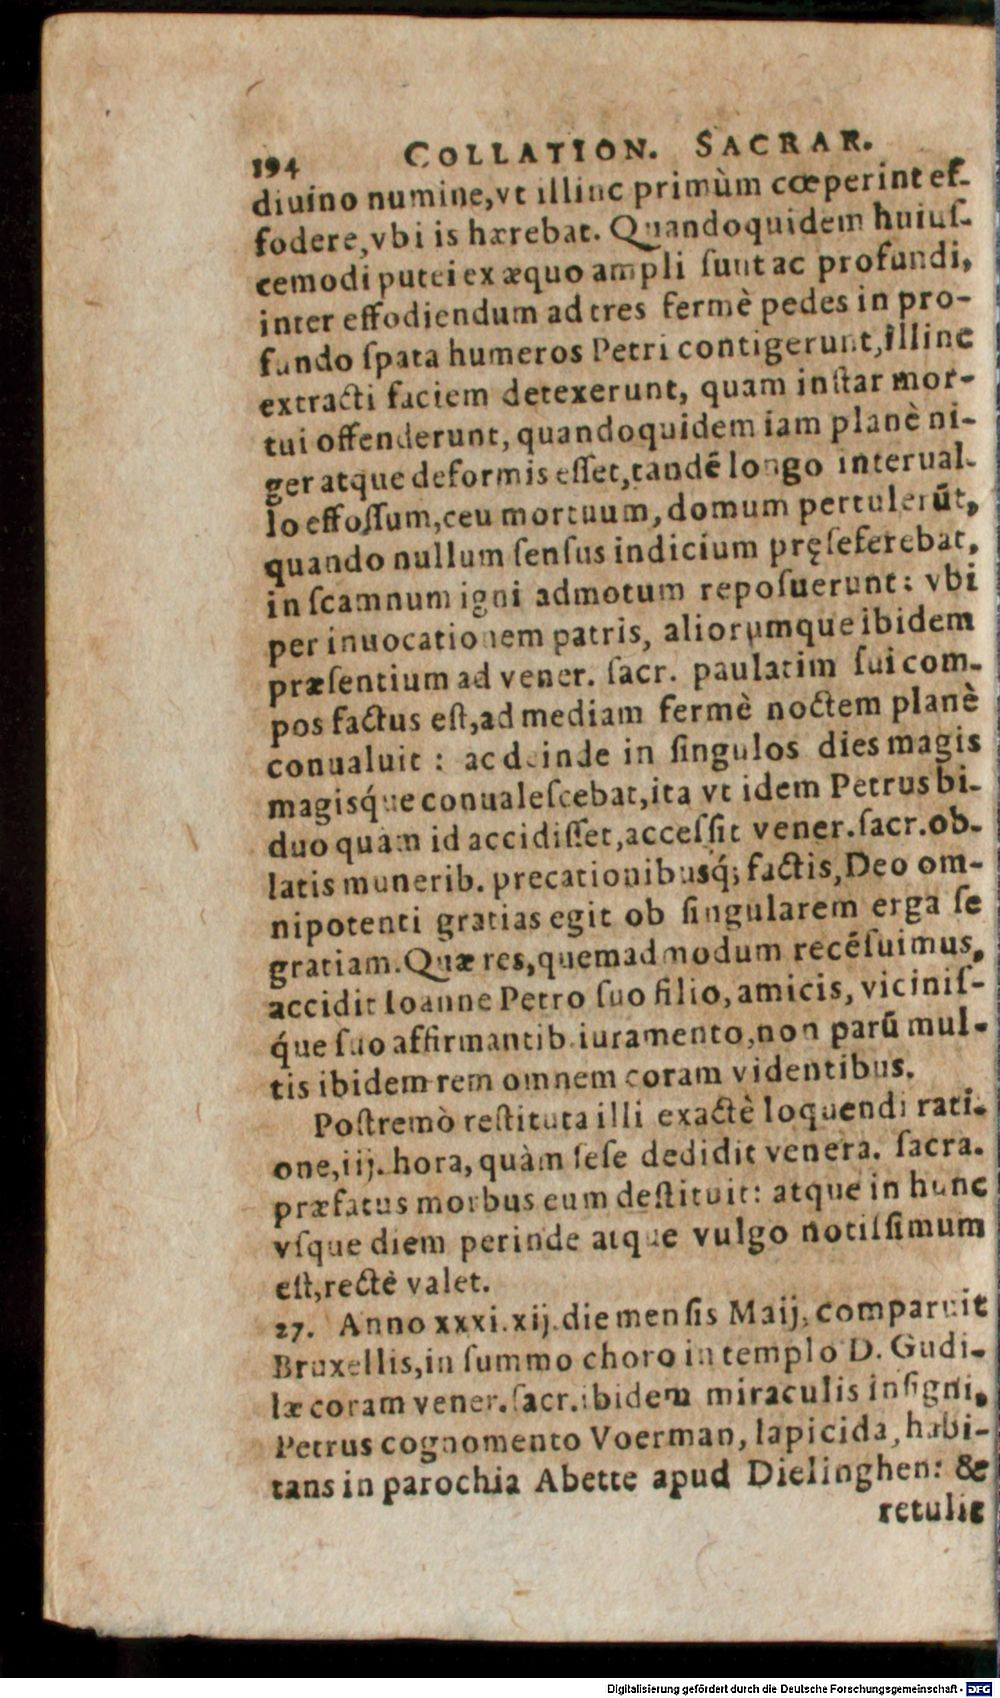 194 COLLATION. SACRAR.
diuino numine,vt illinc primùm cœperint ef-
fodere,vbi is hærebat. Quandoquidem huiuſ-
cemodi putei ex æquo ampli ſunt ac profundi,
inter effodiendum ad tres fermè pedes in pro-
fundo ſpata humeros Petri contigerunt,illinc
extracti faciem detexerunt, quam inſtar mor-
tui offenderunt, quandoquidem iam planè ni-
ger atque deformis eſſet,tandē longo interual-
lo effoſſum,ceu mortuum, domum pertulerūt,
quando nullum ſenſus indicium pręſeferebat,
in ſcamnum igni admotum repoſuerunt: vbi
per inuocationem patris, aliorumque ibidem
præſentium ad vener. ſacr. paulatim ſui com-
pos factus eſt,ad mediam fermè noctem planè
conualuit : ac deinde in ſingulos dies magis
magisq́ue conualeſcebat,ita vt idem Petrus bi-
duo quàm id accidiſſet,acceſſit vener.ſacr.ob-
latis munerib. precationibusq́; factis,Deo om-
nipotenti gratias egit ob ſingularem erga ſe
gratiam.Quæ res,quemadmodum recēſuimus,
accidit Ioanne Petro ſuo filio, amicis, viciniſ-
q́ue ſuo affirmantib.iuramento,non parū mul-
tis ibidem rem omnem coram videntibus.
Poſtremò reſtituta illi exactè loquendi rati-
one,iij. hora, quàm ſeſe dedidit venera. ſacra.
præfatus morbus eum deſtituit: atque in hunc
vſque diem perinde atque vulgo notiſſimum
eſt,rectè valet.
27. Anno xxxi.xij.die menſis Maij, comparuit
Bruxellis,in ſummo choro in templo D. Gudi-
læ coram vener.ſacr.ibidem miraculis inſigni,
Petrus cognomento Voerman, lapicida, habi-
tans in parochia Abette apud Dielinghen: &
retulit
Digitalisierung gefördert durch die Deutsche Forschungsgemeinschaft - DFG